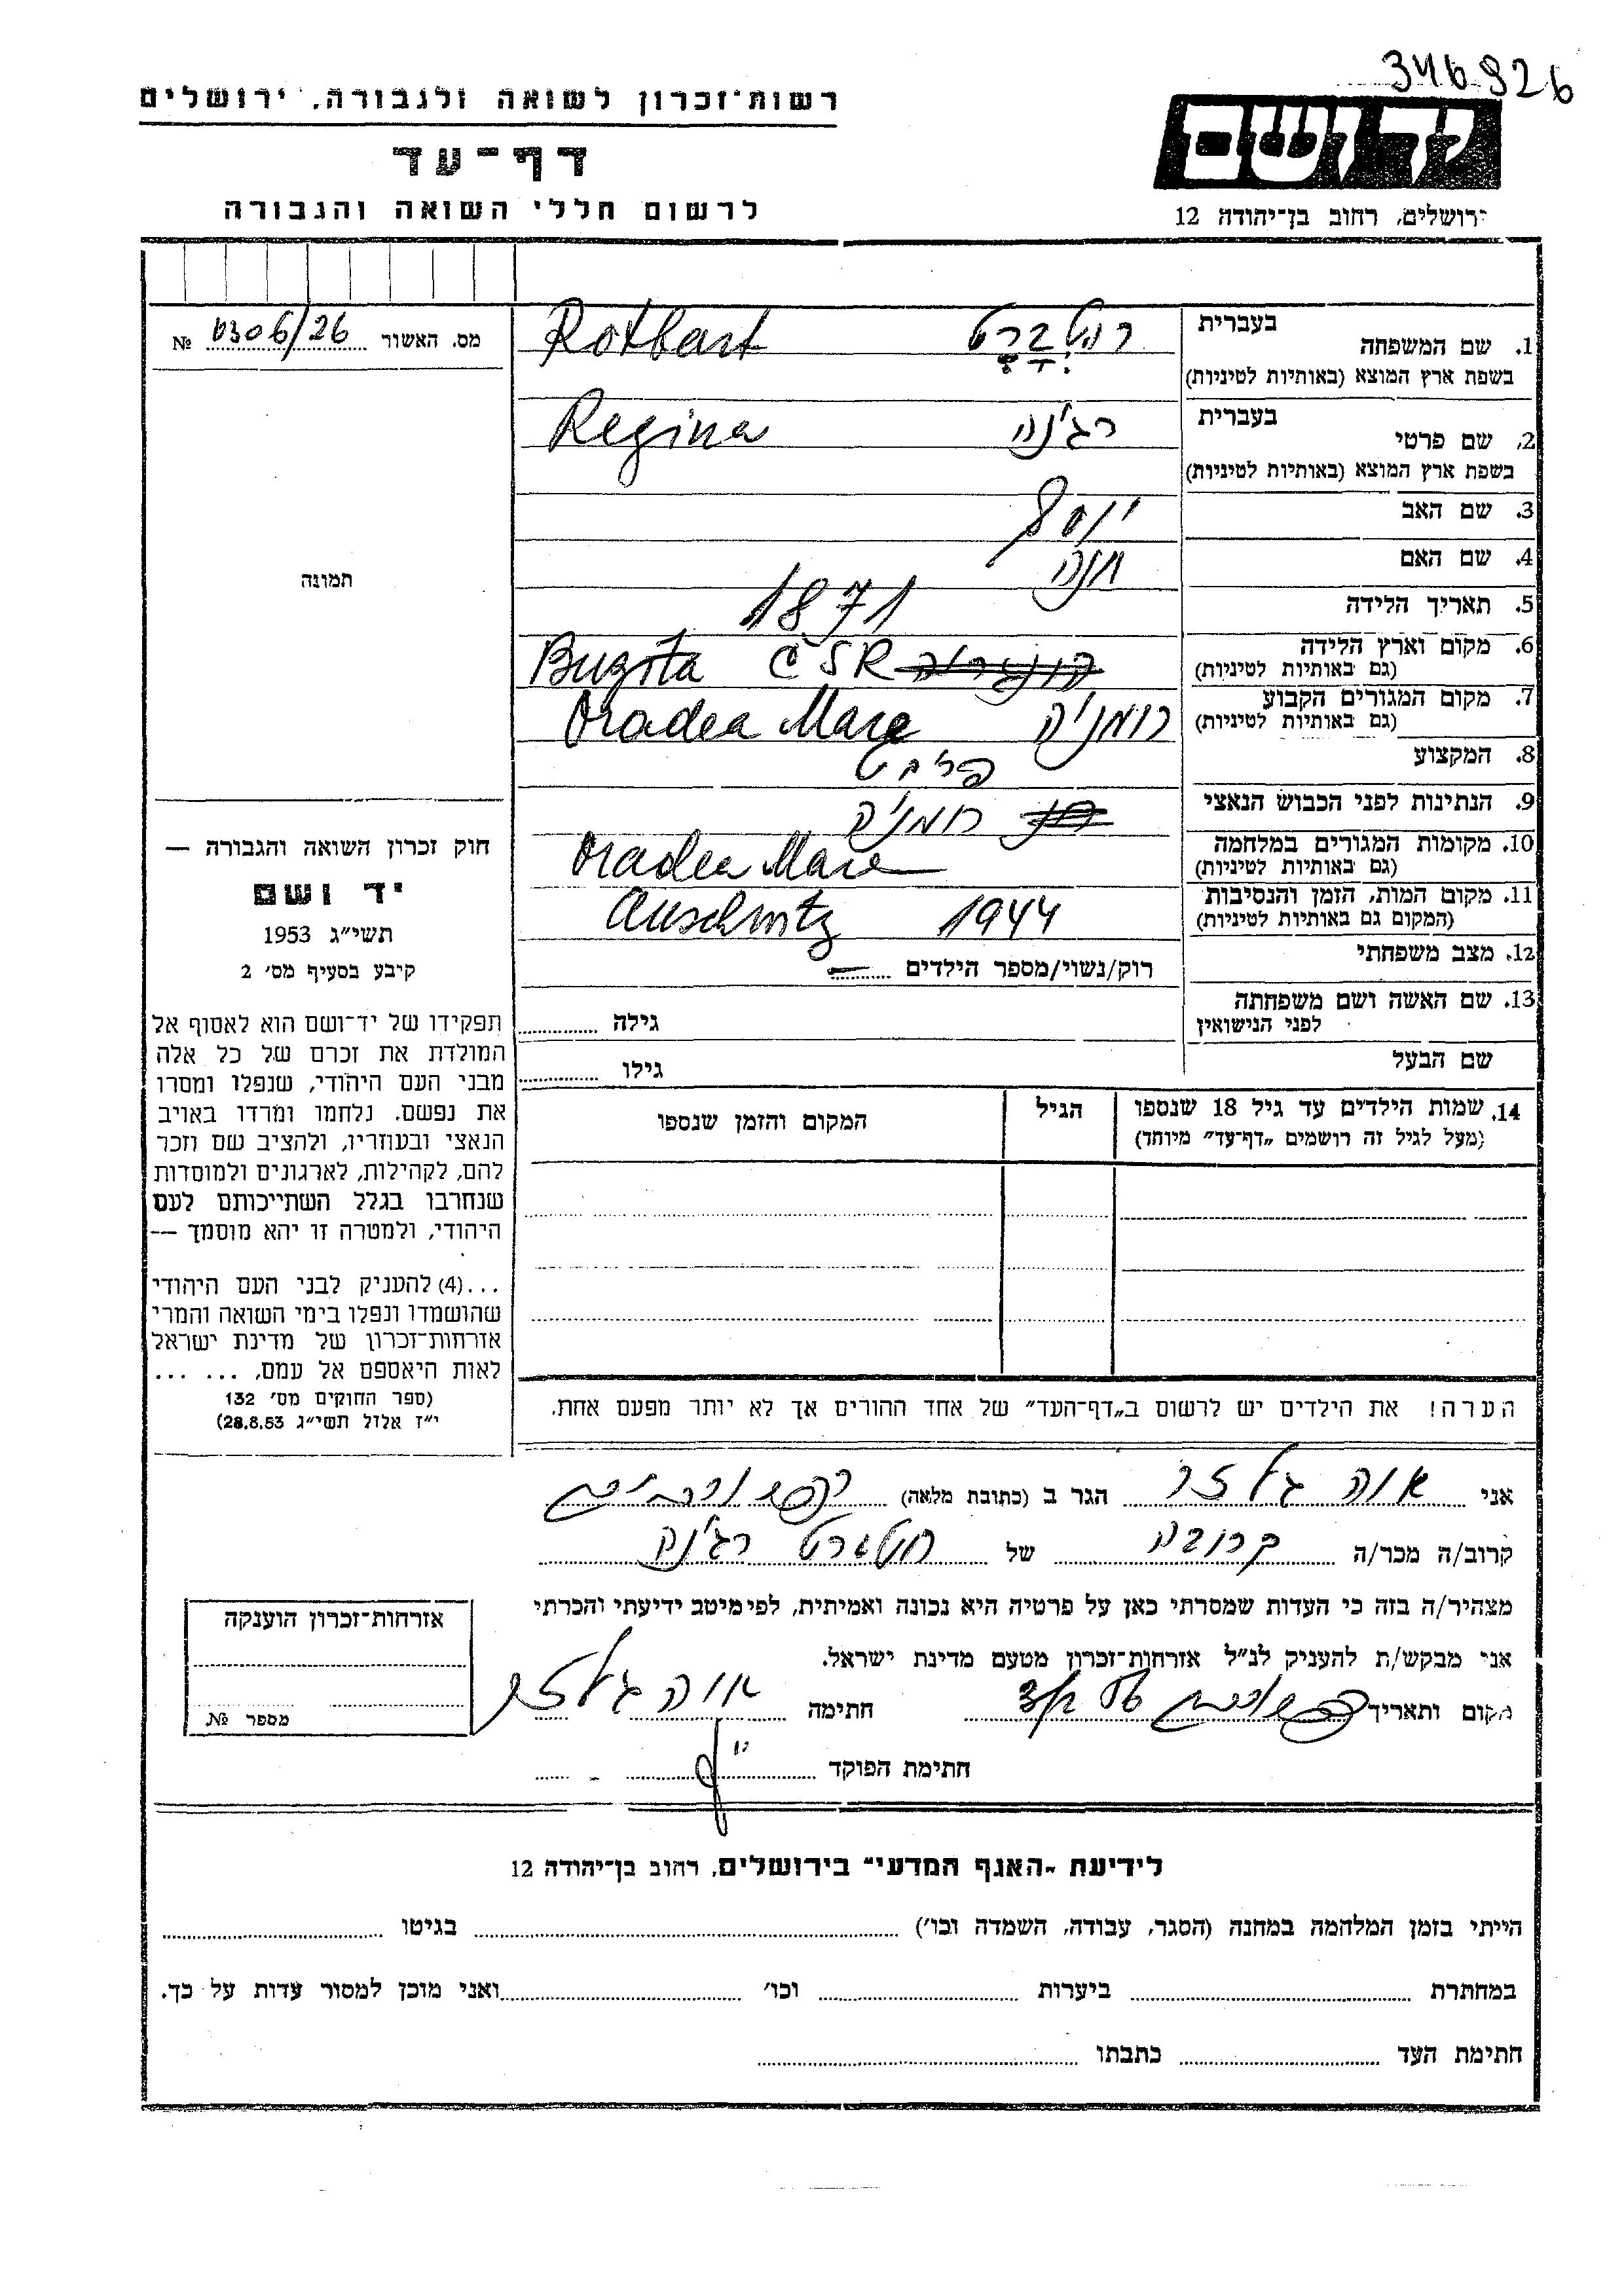 346926
רשות־זכרון לשואה ולגבורה, ירושלים
דף־עד
לרשום חללי השואה והגבורה
ידושם
ירושלים, רחוב בן־יהודה 12
מס. האשור 0306/26 №
תמונה
חוק זכרון השואה והגבורה —
יד ושם
תשי״ג 1953
קיבע בסעיף מס׳ 2
תפקידו של יד־ושם הוא לאסוף אל
המולדת את זכרם של כל אלה
מבני העם היהודי, שנפלו ומסרו
את נפשם. נלחמו ומרדו באויב
הנאצי ובעוזריו, ולהציב שם וזכר
להם, לקהילות, לארגונים ולמוסדות
שנחרבו בגלל השתייכותם לעם
היהודי, ולמטרה זו יהא מוסמך —
...(4) להעניק לבני העם היהודי
שהושמדו ונפלו בימי השואה והמרי
אזרחות־זכרון של מדינת ישראל
לאות היאספם אל עמם. ... ...
(ספר החוקים מס׳ 132
י״ז אלול תשי״ג 28.8.53)
בעברית
1. שם המשפחה רוטברט Rotbart
בשפת ארץ המוצא (באותיות לטיניות)
בעברית
2. שם פרטי רג׳נה Regina
בשפת ארץ המוצא (באותיות לטיניות)
3. שם האב יוסף
4. שם האם חנה
5. תאריך הלידה 1871
6. מקום וארץ הלידה הונגריה Buzsta ČSR
(גם באותיות לטיניות)
7. מקום המגורים הקבוע רומניה Oradea Mare
(גם באותיות לטיניות)
8. המקצוע פריבט
9. הנתינות לפני הכבוש הנאצי רומניה
10. מקומות המגורים במלחמה Oradea Mare
(גם באותיות לטיניות)
11. מקום המות, הזמן והנסיבות Auschwitz 1944
(המקום גם באותיות לטיניות)
12. מצב משפחתי רוק/נשוי/מספר הילדים —
13. שם האשה ושם משפחתה גילה
לפני הנישואין
שם הבעל גילו
14. שמות הילדים עד גיל 18 שנספו הגיל המקום והזמן שנספו
(מעל לגיל זה רושמים „דף־עד״ מיוחד)
הערה! את הילדים יש לרשום ב„דף־העד״ של אחד ההורים אך לא יותר מפעם אחת.
אני אוה גלזר הגר ב (כתובת מלאה)
קרוב/ה מכר/ה קרובה של רוטברט רג׳נה
מצהיר/ה בזה כי העדות שמסרתי כאן על פרטיה היא נכונה ואמיתית, לפי מיטב ידיעתי והכרתי
אני מבקש/ת להעניק לנ״ל אזרחות־זכרון מטעם מדינת ישראל.
מקום ותאריך חתימה אוה גלזר
חתימת הפוקד
אזרחות־זכרון הוענקה
מספר №
לידיעת „האגף המדעי״ בירושלים, רחוב בן־יהודה 12
הייתי בזמן המלחמה במחנה (הסגר, עבודה, השמדה וכו׳) בגיטו
במחתרת ביערות וכו׳ ואני מוכן למסור עדות על כך.
חתימת העד כתבתו